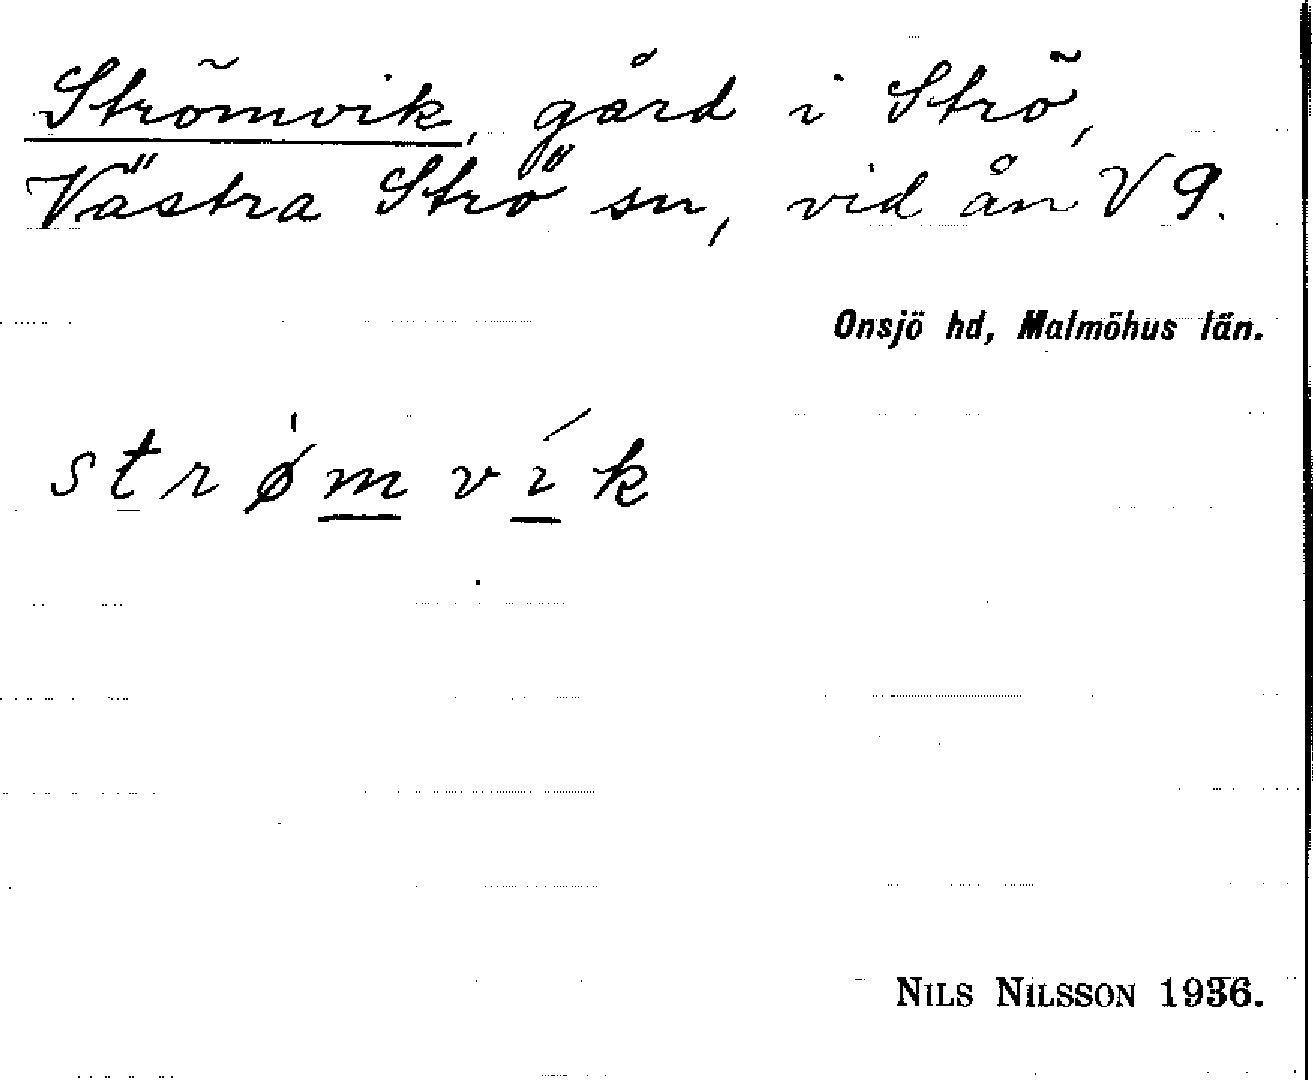 Strömvik, gård i Strö,
Västra Strö sn, vid ån V 9.
Onsjö hd, Malmöhus län.
strø̍m̲ví̲k
NILS NILSSON 1936.